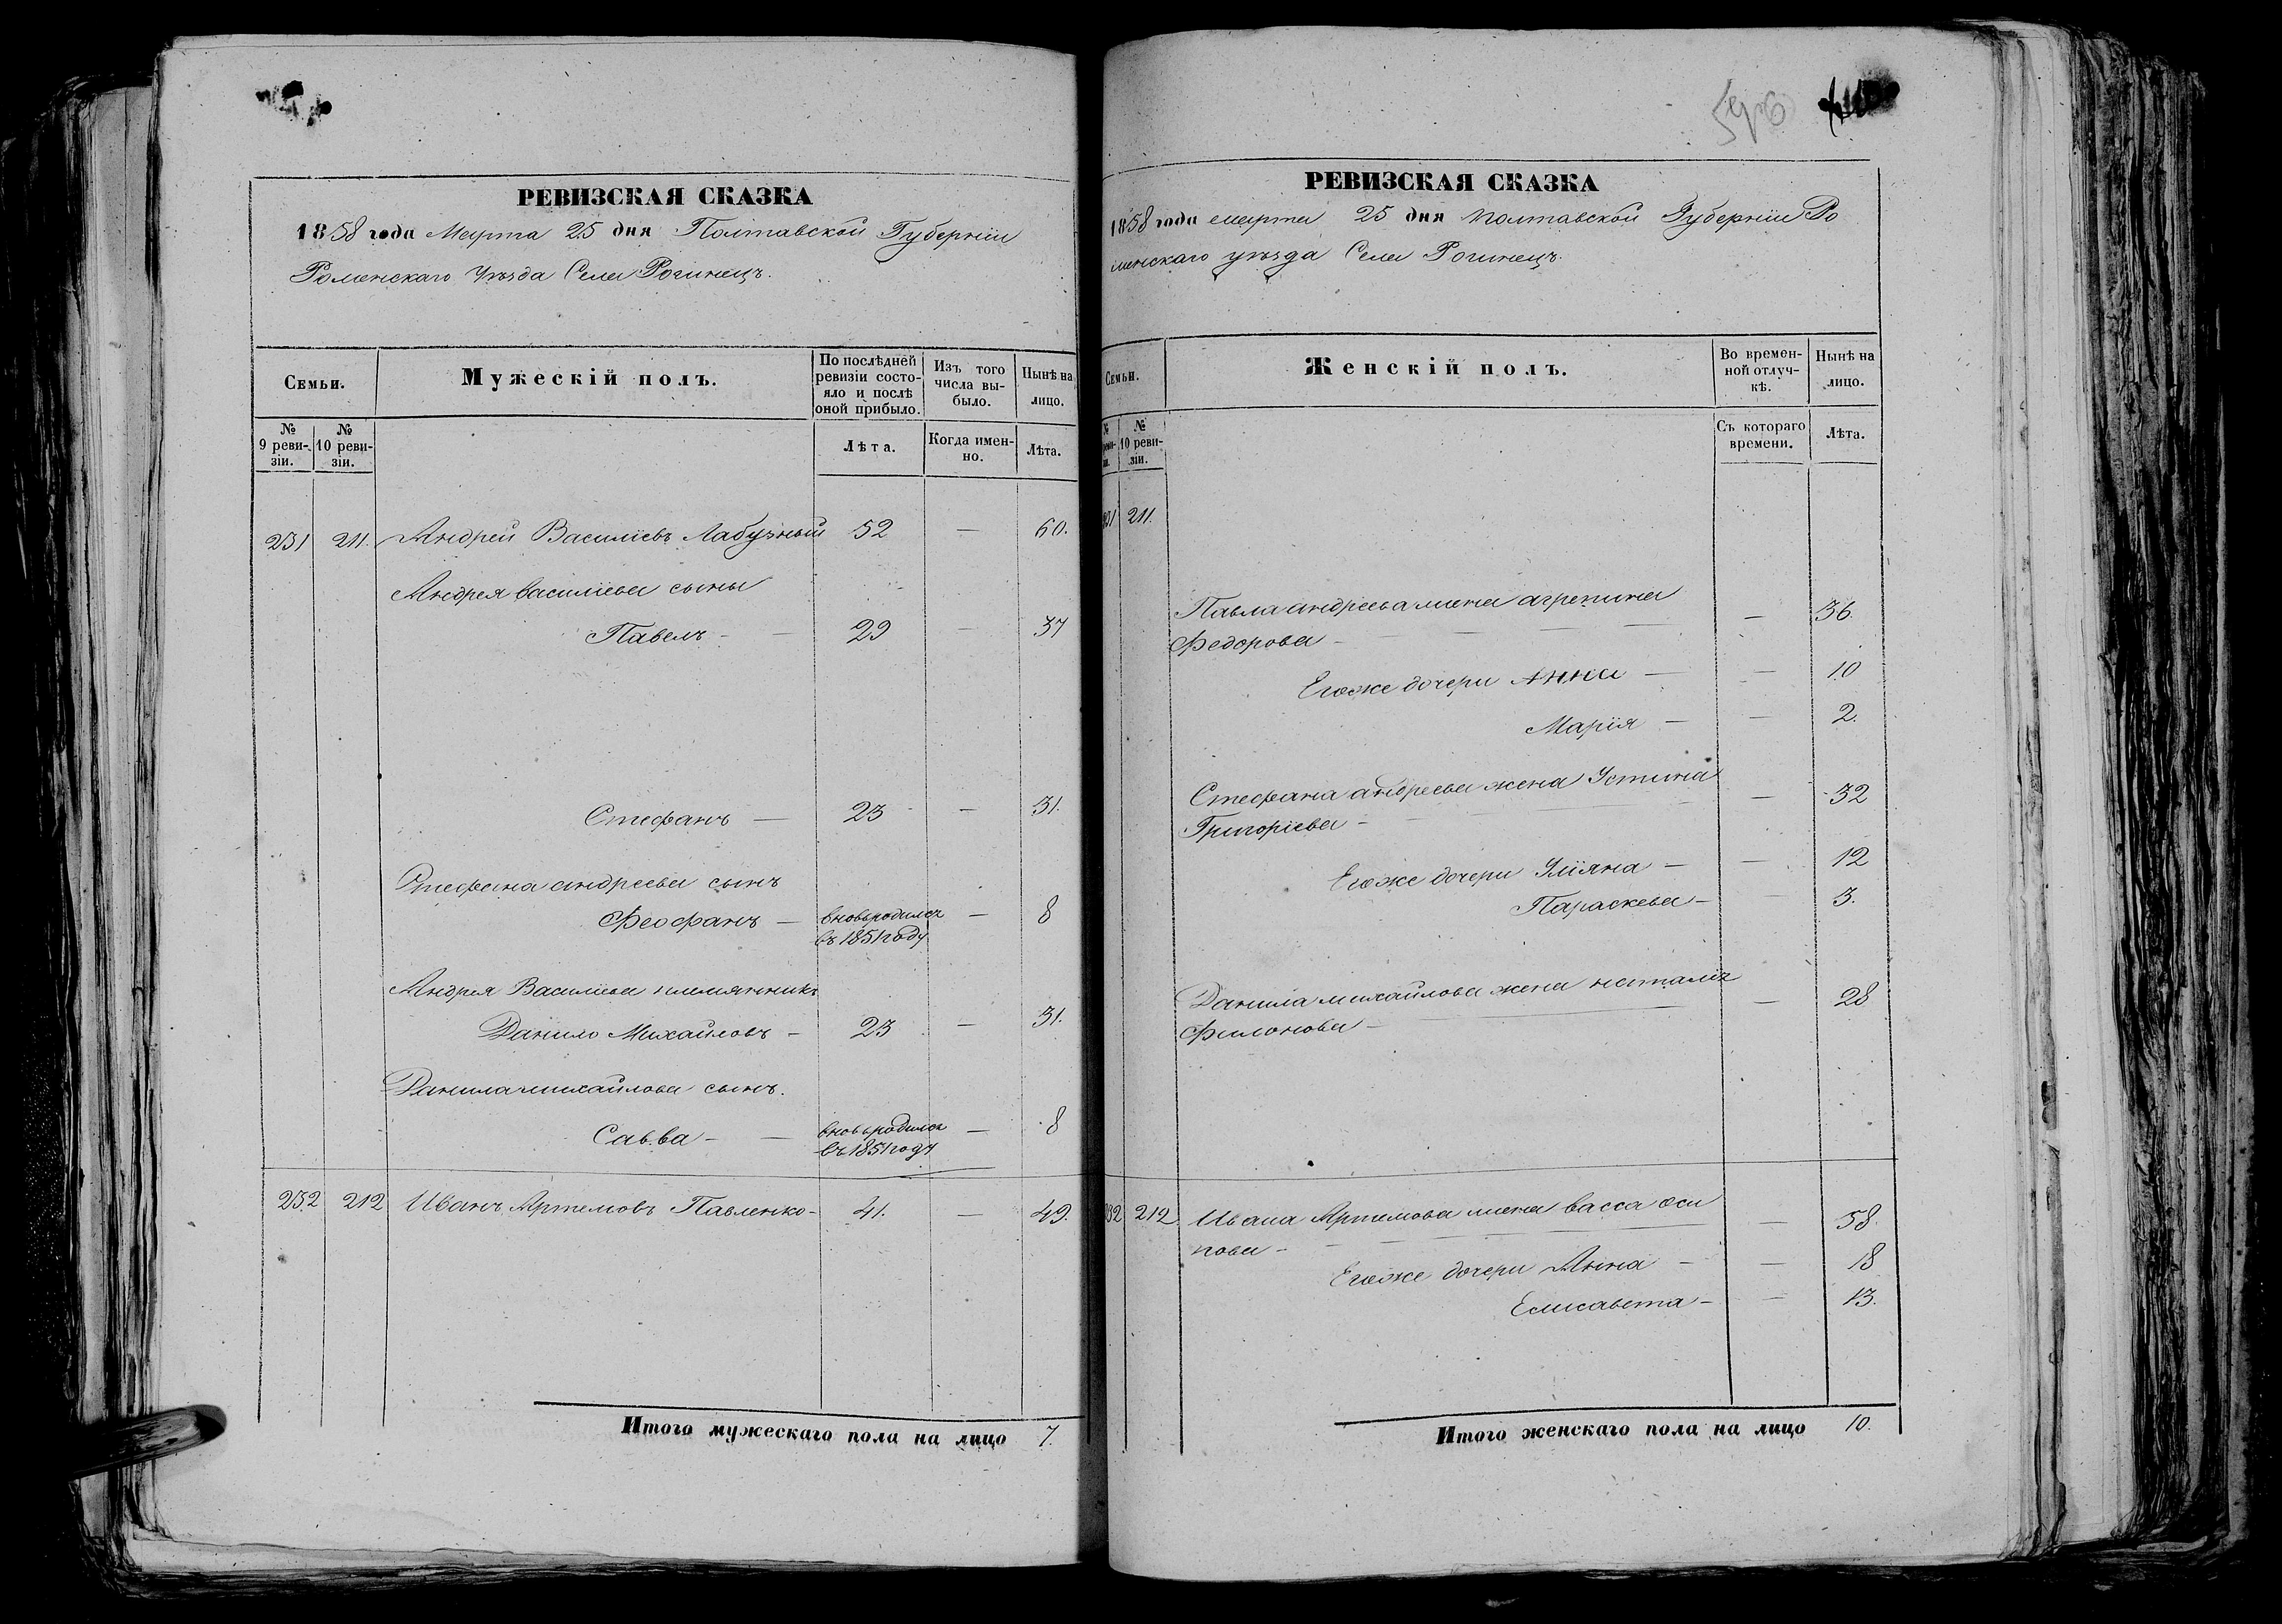 РЕВИЗСКАЯ СКАЗКА
1858 года Марта 25 дня Полтавской Губерніи
Роменскаго Уѣзда Села Рогинецъ.
Семьи.
Мужескій полъ.
По послѣдней ревизіи состояло и послѣ оной прибыло.
Изъ того числа выбыло.
Нынѣ на лицо.
№ 9 ревизіи.
№ 10 ревизіи.
Лѣта.
Когда именно.
Лѣта.
231 211. Андрей Василіевъ Лабузный 52 — 60.
Андрея Василіева сыны
Павелъ — 29 — 37
Стефанъ — 23 — 31.
Стефана андреева сынъ
Феофанъ — вновьродился — 8
въ 1851 году
Андрея Василіева племянникъ
Данило Михайловъ — 23 — 31.
Данила михайлова сынъ.
Савва — вновьродился — 8
въ 1851 году
232 212 Иванъ Артемовъ Павленко — 41. — 49.
Итого мужескаго пола на лицо 7.
596
РЕВИЗСКАЯ СКАЗКА
1858 года марта 25 дня Полтавской Губерніи Ро
менскаго уѣзда Села Рогинецъ.
Семьи.
Женскій полъ.
Во временной отлучкѣ.
Нынѣ на лицо.
№ 10 ревизіи.
Съ котораго времени.
Лѣта.
231 211.
Павла андреева жена агрепина — 36.
Федорова —
Егоже дочери Анна — — 10
Марія — — 2.
Стефана андреева жена Устина — 32
Григоріева —
Егоже дочери Уліяна — — 12
Параскева — — 3.
Данила михайлова жена наталія — 28
Филонова —
232 212 Ивана Артемова жена васса оси — 58.
пова —
Егоже дочери Анна — — 18
Елисавета — — 13.
Итого женскаго пола на лицо 10.